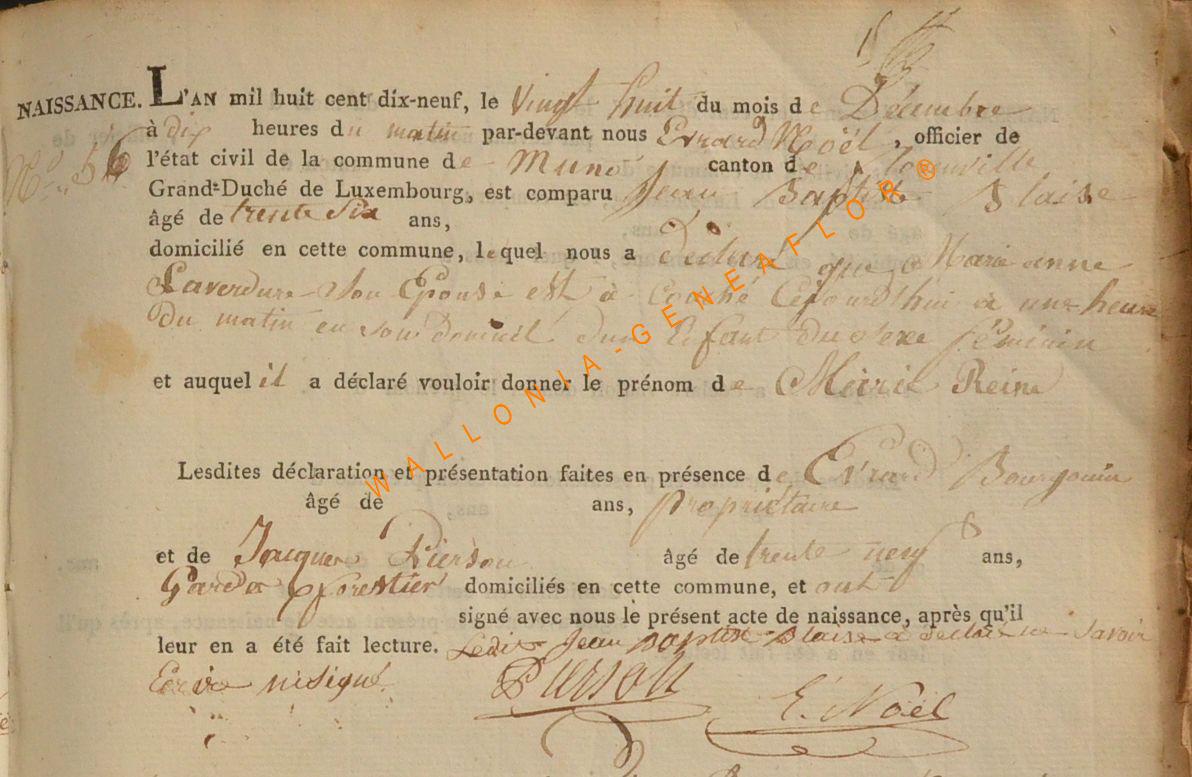 NAISSANCE. L'AN mil huit cent dix-neuf, le Vingt huit du mois de Décembre
à dix heures du matin par-devant nous Evrard Noël, officier de
N° 56 l'état civil de la commune de Muno canton de
Grand-Duché de Luxembourg, est comparu Jean Baptiste Blaise
âgé de trente Six ans,
domicilié en cette commune, lequel nous a déclaré que Marie anne
Laverdure Son Epouse est à couché Cejourd'hui a une heure
du matin en son domicil dun Enfant du Sexe féminin
et auquel il a déclaré vouloir donner le prénom de Marie Reine
Lesdites déclaration et présentation faites en présence de Evrard Bourguin
âgé de ans, propriétaire
et de Jacques Pierson âgé de trente neuf ans,
Garde forestier domiciliés en cette commune, et ont
signé avec nous le présent acte de naissance, après qu'il
leur en a été fait lecture. Ledit Jean Baptiste Blaise a déclaré ne Savoir
Ecrire ni Signé.
Pierson E. Noël
WALLONIA-GENEAFLOR®